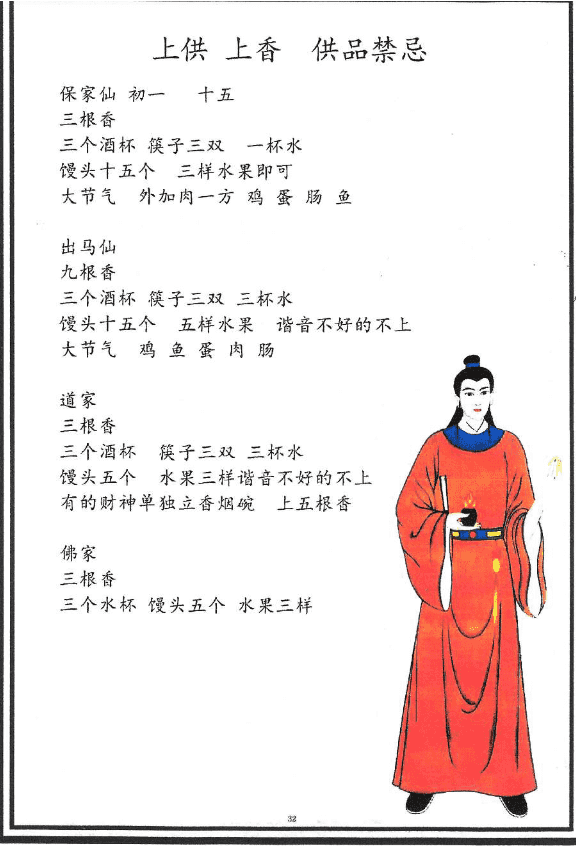 上供 上香 供品禁忌
保家仙 初一 十五
三根香
三个酒杯 筷子三双 一杯水
馒头十五个 三样水果即可
大节气 外加肉一方 鸡 蛋 肠 鱼
出马仙
九根香
三个酒杯 筷子三双 三杯水
馒头十五个 五样水果 谐音不好的不上
大节气 鸡 鱼 蛋 肉 肠
道家
三根香
三个酒杯 筷子三双 三杯水
馒头五个 水果三样谐音不好的不上
有的财神单独立香烟碗 上五根香
佛家
三根香
三个水杯 馒头五个 水果三样
32